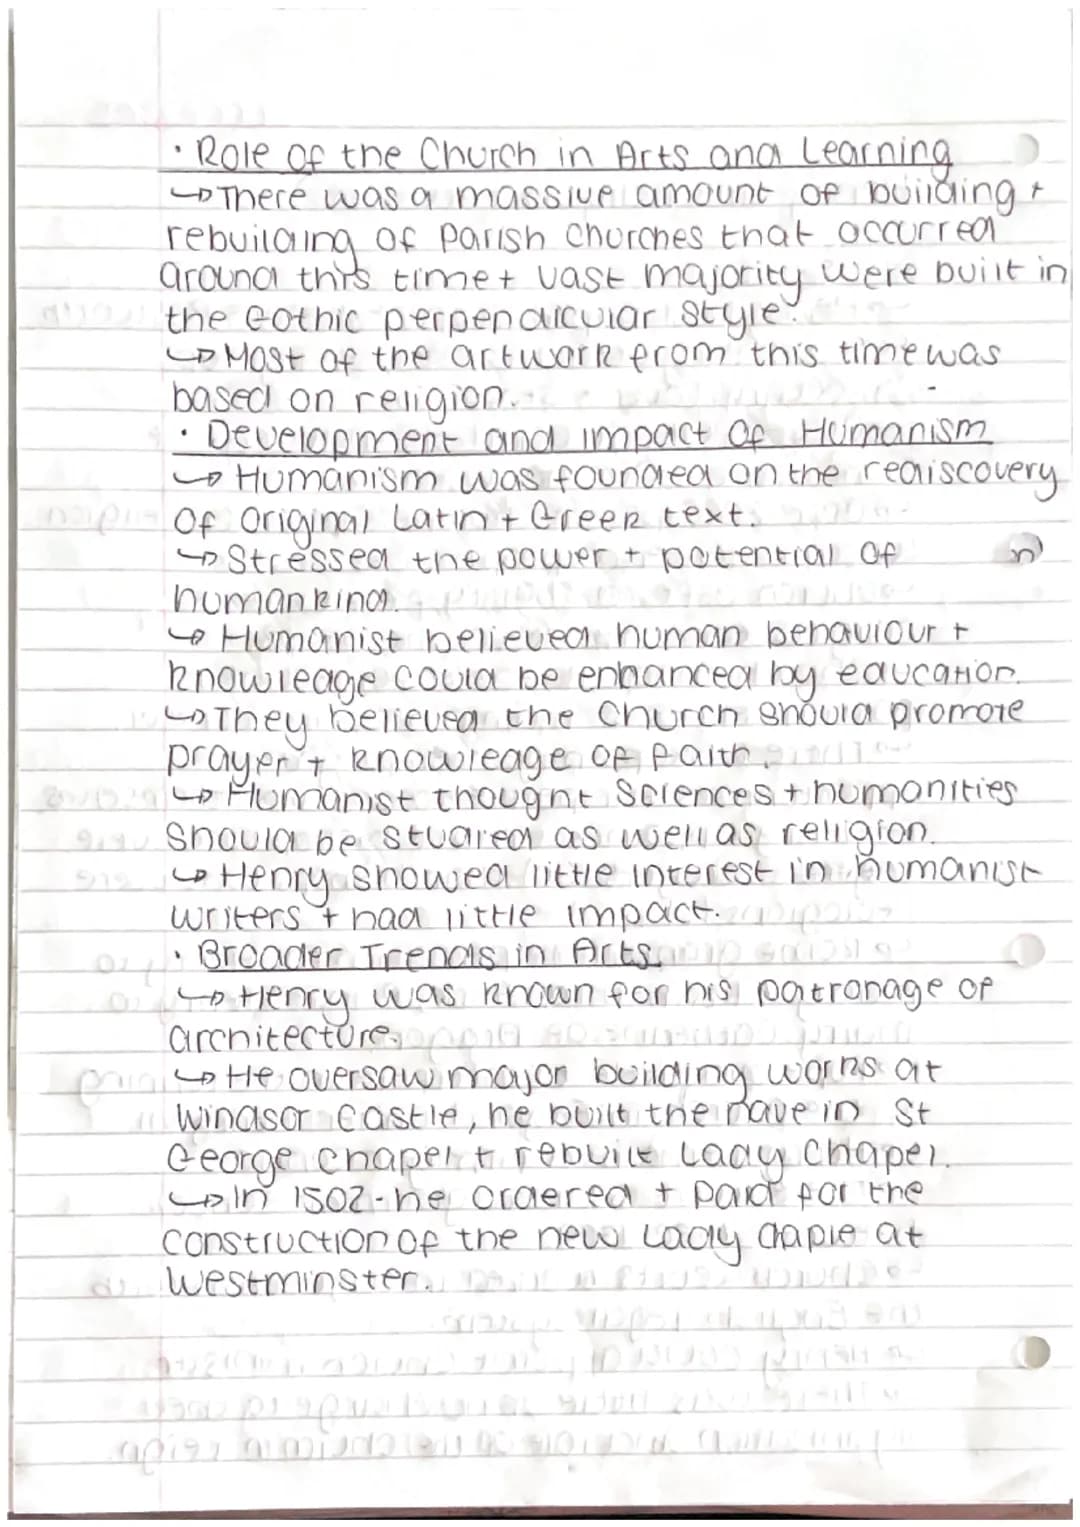 · Role of the Church in Arts and Learning
↳ There was a massive amount of building +
rebuilding of Parish Churches that occurred
around this time + vast majority were built in
the Gothic perpendicular style.
↳ Most of the artwork from this time was
based on religion.
· Development and impact of Humanism
↳ Humanism was founded on the rediscovery
of Original Latin + Greek text.
↳ Stressed the power + potential of
humankind.
↳ Humanist believed human behaviour +
knowledge could be enhanced by education.
↳ They believed the Church should promote
prayer + knowledge of faith.
↳ Humanist thought Sciences + humanities
should be studied as well as religion.
↳ Henry showed little interest in humanist
writers + had little impact.
· Broader Trends in Arts.
↳ Henry was known for his patronage of
architecture.
↳ He oversaw major building works at
Windsor Castle, he built the nave in St
George chapel + rebuilt Lady Chapel.
↳ In 1502 - he ordered + paid for the
construction of the new Lady Chaple at
Westminster.